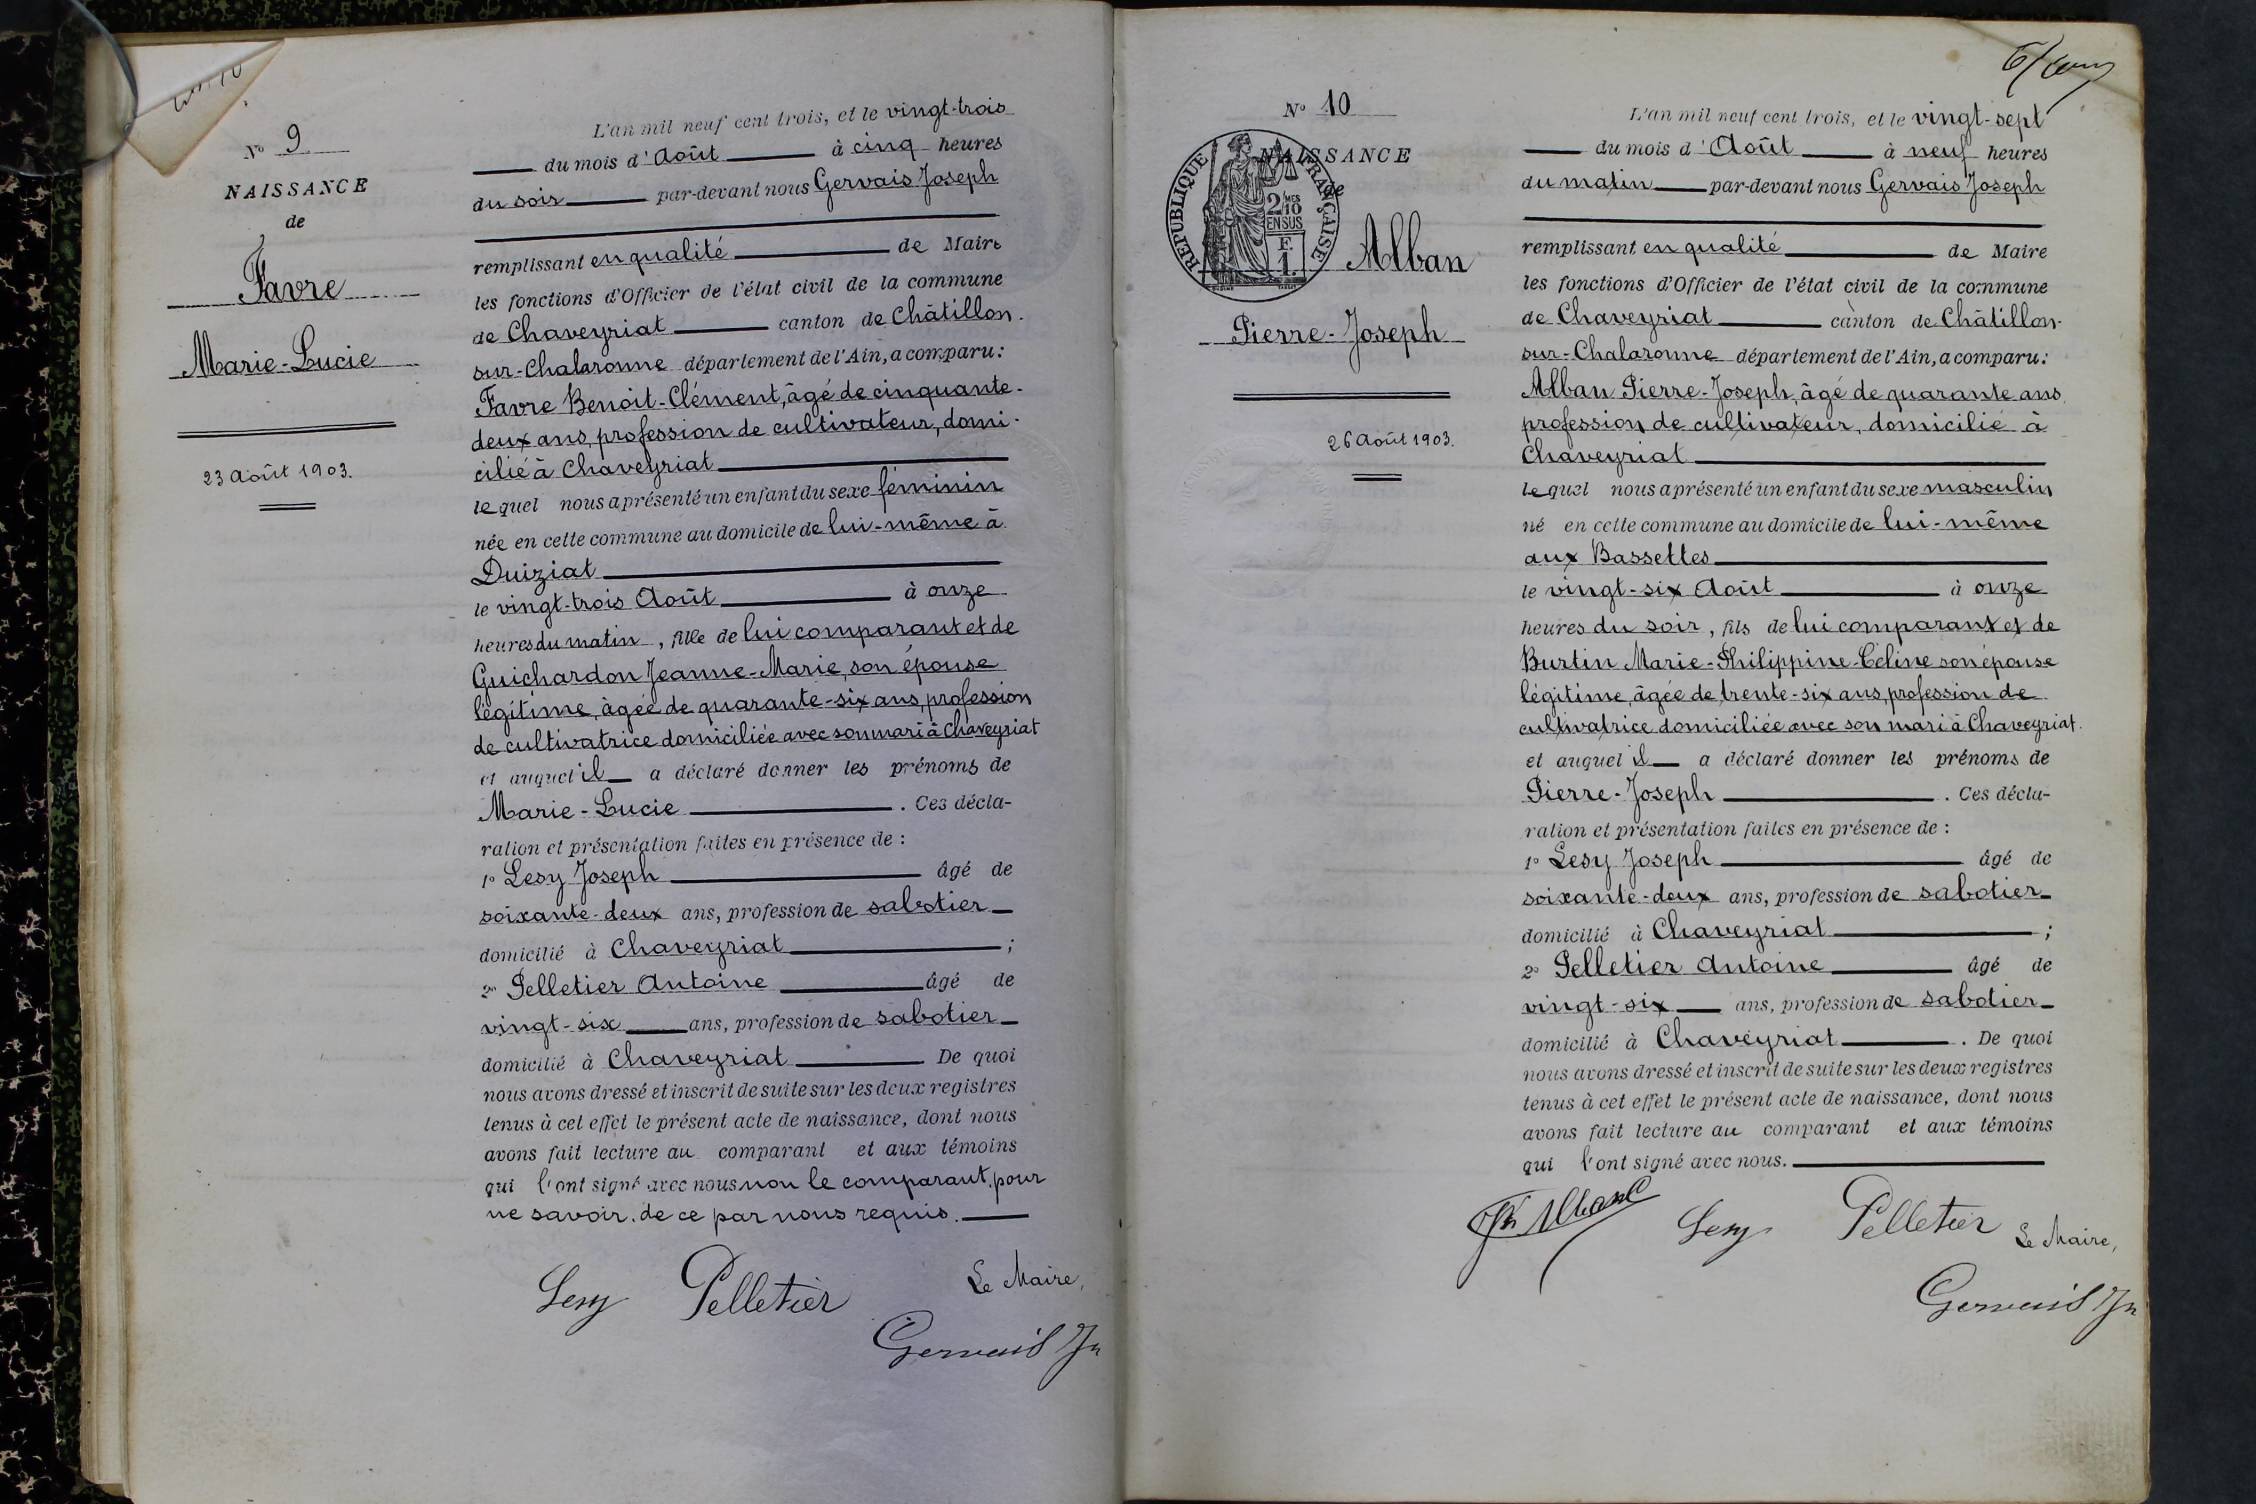 N° 9
NAISSANCE
de
Favre
Marie-Lucie
23 Août 1903.
L'an mil neuf cent trois, et le vingt-trois
du mois d'Août à cinq heures
du soir par-devant nous Gervais Joseph
remplissant en qualité de Maire
les fonctions d'Officier de l'état civil de la commune
de Chaveyriat canton de Châtillon-
sur-Chalaronne département de l'Ain, a comparu:
Favre Benoit-Clément, âgé de cinquante-
deux ans, profession de cultivateur, domi-
cilié à Chaveyriat
lequel nous a présenté un enfant du sexe féminin
née en cette commune au domicile de lui-même à
Duiziat
le vingt-trois Août à onze
heures du matin, fille de lui comparant et de
Guichardon Jeanne-Marie, son épouse
légitime, âgée de quarante-six ans, profession
de cultivatrice domiciliée avec son mari à Chaveyriat
et auquel il a déclaré donner les prénoms de
Marie-Lucie. Ces décla-
ration et présentation faites en présence de :
1° Lesy Joseph âgé de
soixante-deux ans, profession de sabotier
domicilié à Chaveyriat ;
2° Pelletier Antoine âgé de
vingt-six ans, profession de sabotier
domicilié à Chaveyriat De quoi
nous avons dressé et inscrit de suite sur les deux registres
tenus à cet effet le présent acte de naissance, dont nous
avons fait lecture au comparant et aux témoins
qui l'ont signé avec nous non le comparant, pour
ne savoir, de ce par nous requis.
Lesy Pelletier Le Maire,
Gervais Jh
N° 10
NAISSANCE
de
RÉPUBLIQUE FRANÇAISE
2/10 MES
EN SUS
F.
1.
Alban
Pierre-Joseph
26 Août 1903.
L'an mil neuf cent trois, et le vingt-sept
du mois d'Août à neuf heures
du matin par-devant nous Gervais Joseph
remplissant en qualité de Maire
les fonctions d'Officier de l'état civil de la commune
de Chaveyriat canton de Châtillon-
sur-Chalaronne département de l'Ain, a comparu:
Alban Pierre-Joseph, âgé de quarante ans,
profession de cultivateur, domicilié à
Chaveyriat
lequel nous a présenté un enfant du sexe masculin
né en cette commune au domicile de lui-même
aux Bassettes
le vingt-six Août à onze
heures du soir, fils de lui comparant et de
Burtin Marie-Philippine-Céline son épouse
légitime, âgée de trente-six ans, profession de
cultivatrice domiciliée avec son mari à Chaveyriat.
et auquel il a déclaré donner les prénoms de
Pierre-Joseph. Ces décla-
ration et présentation faites en présence de :
1° Lesy Joseph âgé de
soixante-deux ans, profession de sabotier
domicilié à Chaveyriat ;
2° Pelletier Antoine âgé de
vingt-six ans, profession de sabotier
domicilié à Chaveyriat. De quoi
nous avons dressé et inscrit de suite sur les deux registres
tenus à cet effet le présent acte de naissance, dont nous
avons fait lecture au comparant et aux témoins
qui l'ont signé avec nous.
Alban Lesy Pelletier Le Maire,
Gervais Jh